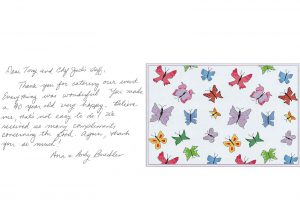 Dear Tony and Chef Jack's staff,
Thank you for catering our event.
Everything was wonderful! You made
a 90 year old very happy. Believe
me, that's not easy to do! We
received so many compliments
concerning the food. Again, thank
you, so much!
Ann & Andy